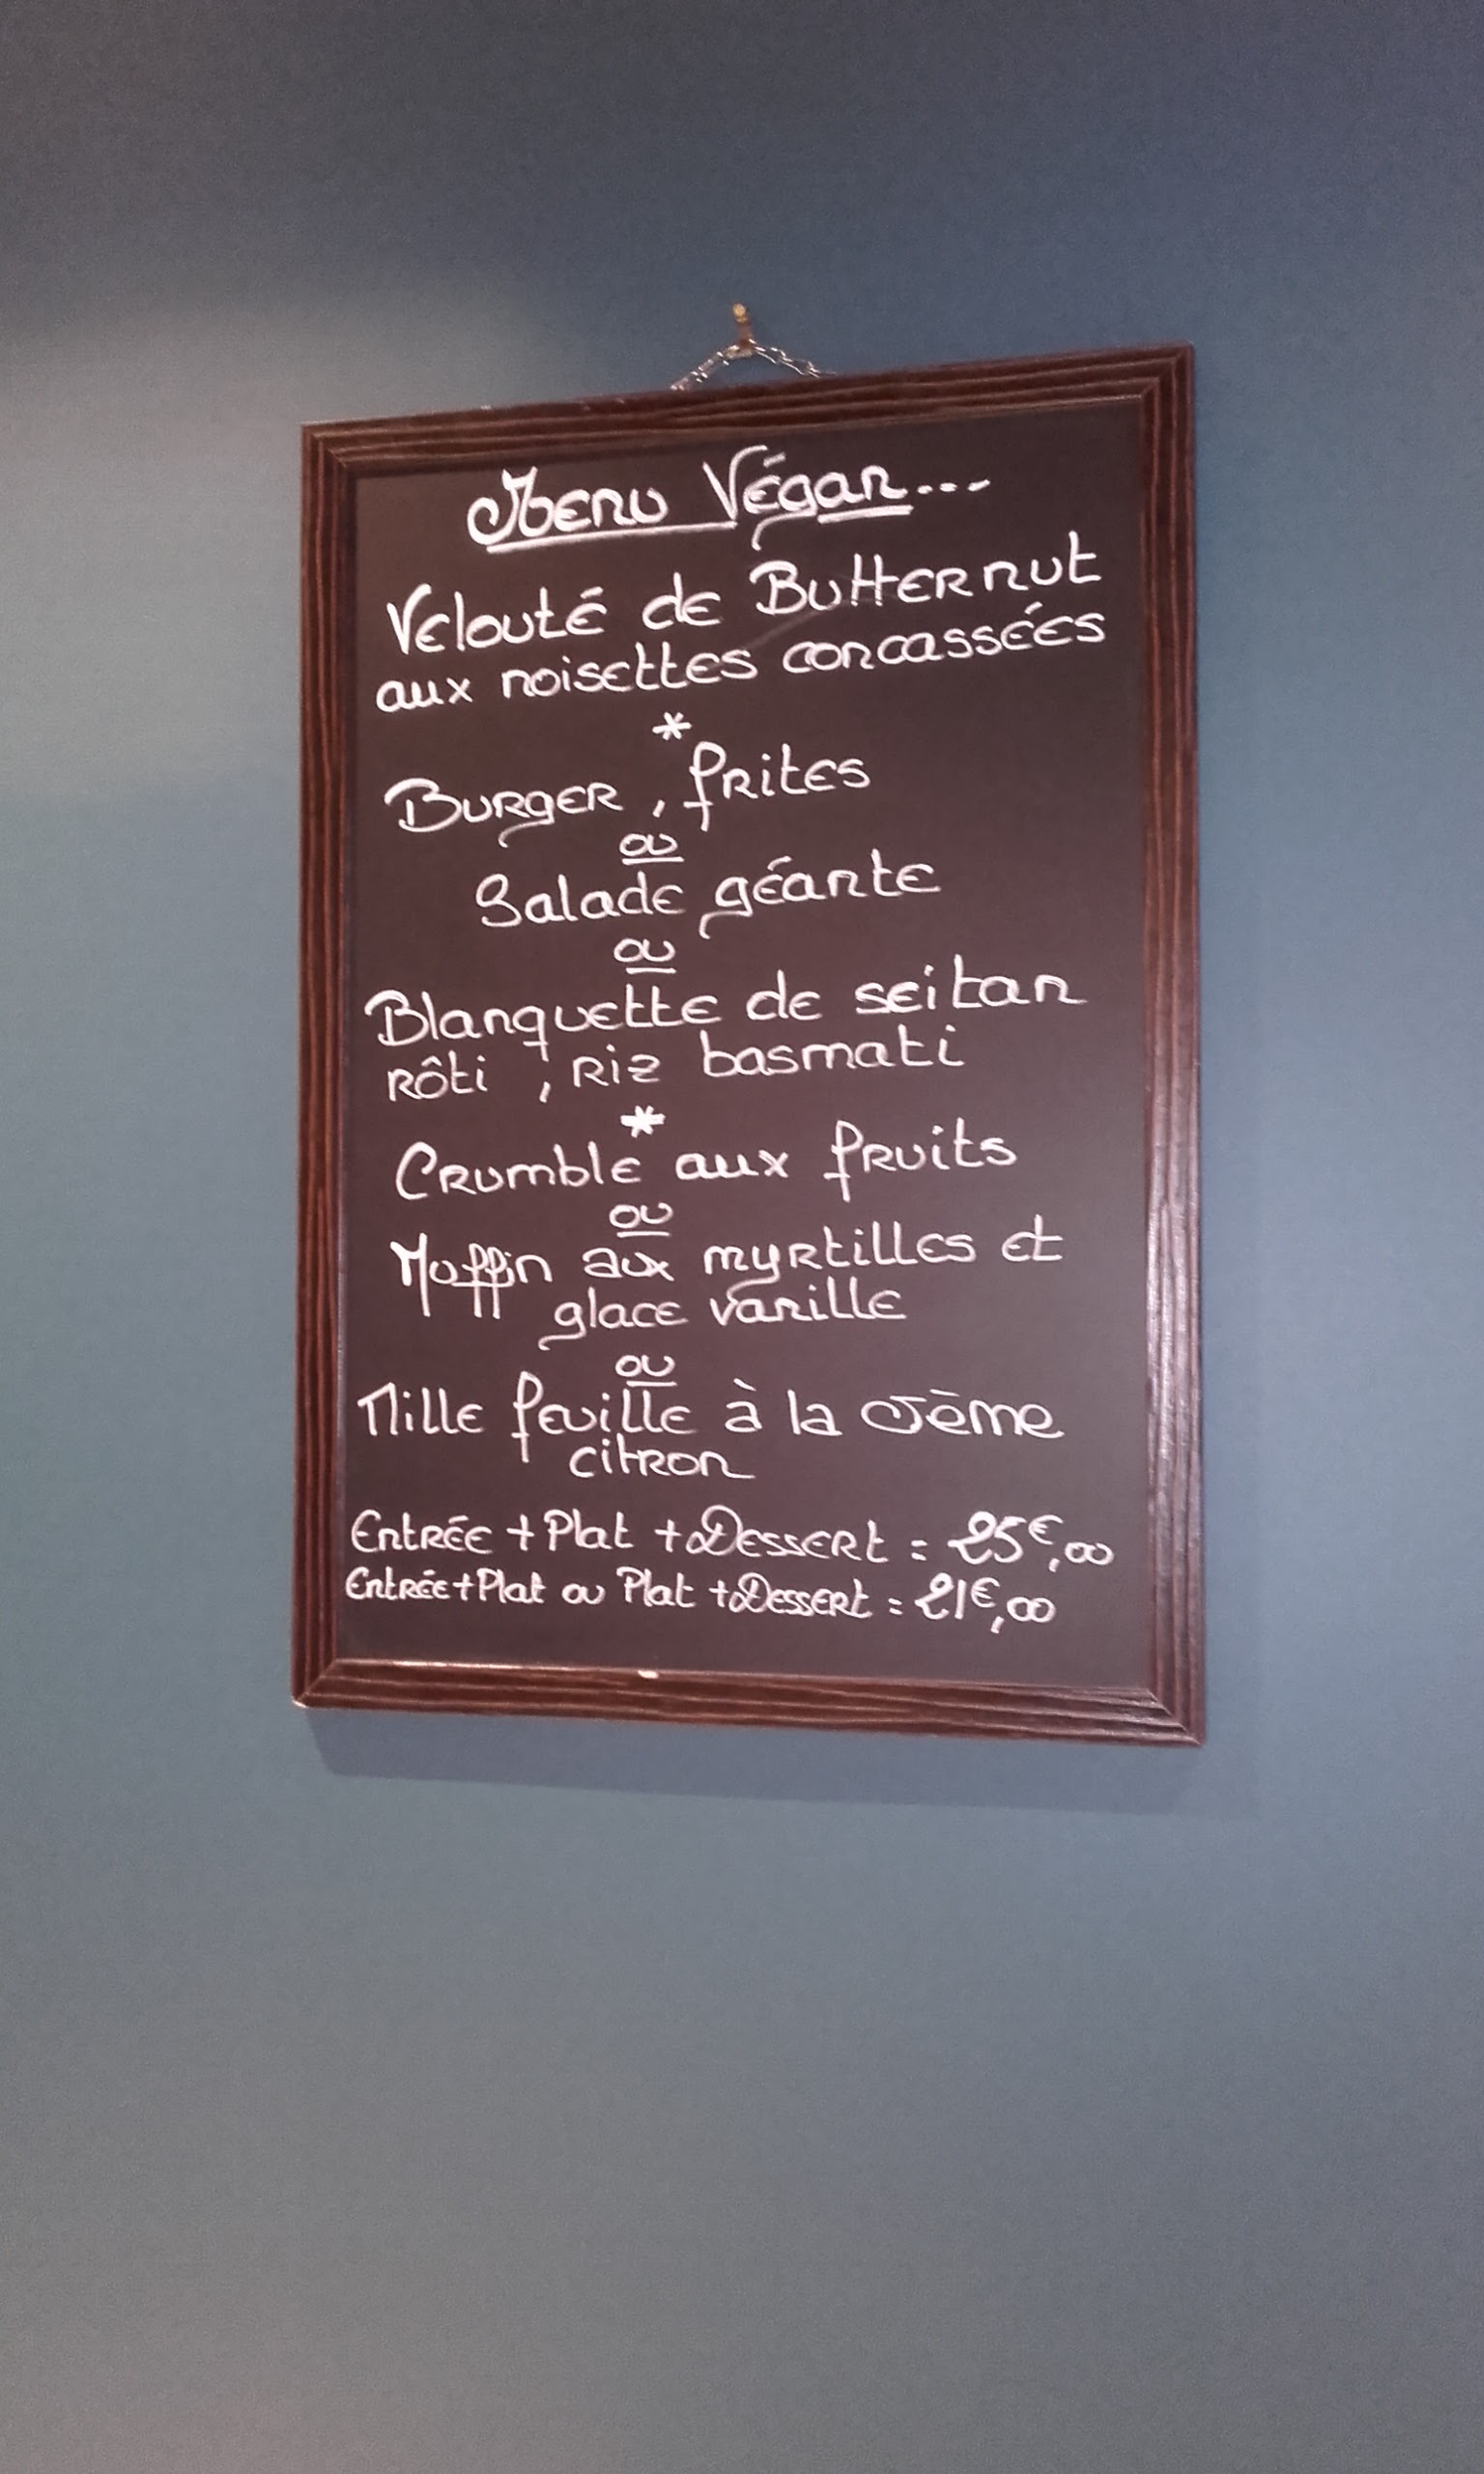 Menu Végan...
Velouté de Butternut
aux noisettes concassées
*
Burger, frites
ou
Salade géante
ou
Blanquette de seitan
rôti, riz basmati
*
Crumble aux fruits
ou
Muffin aux myrtilles et
glace vanille
ou
Mille feuille à la crème
citron
Entrée + Plat + Dessert = 25€,00
Entrée + Plat ou Plat + Dessert = 21€,00